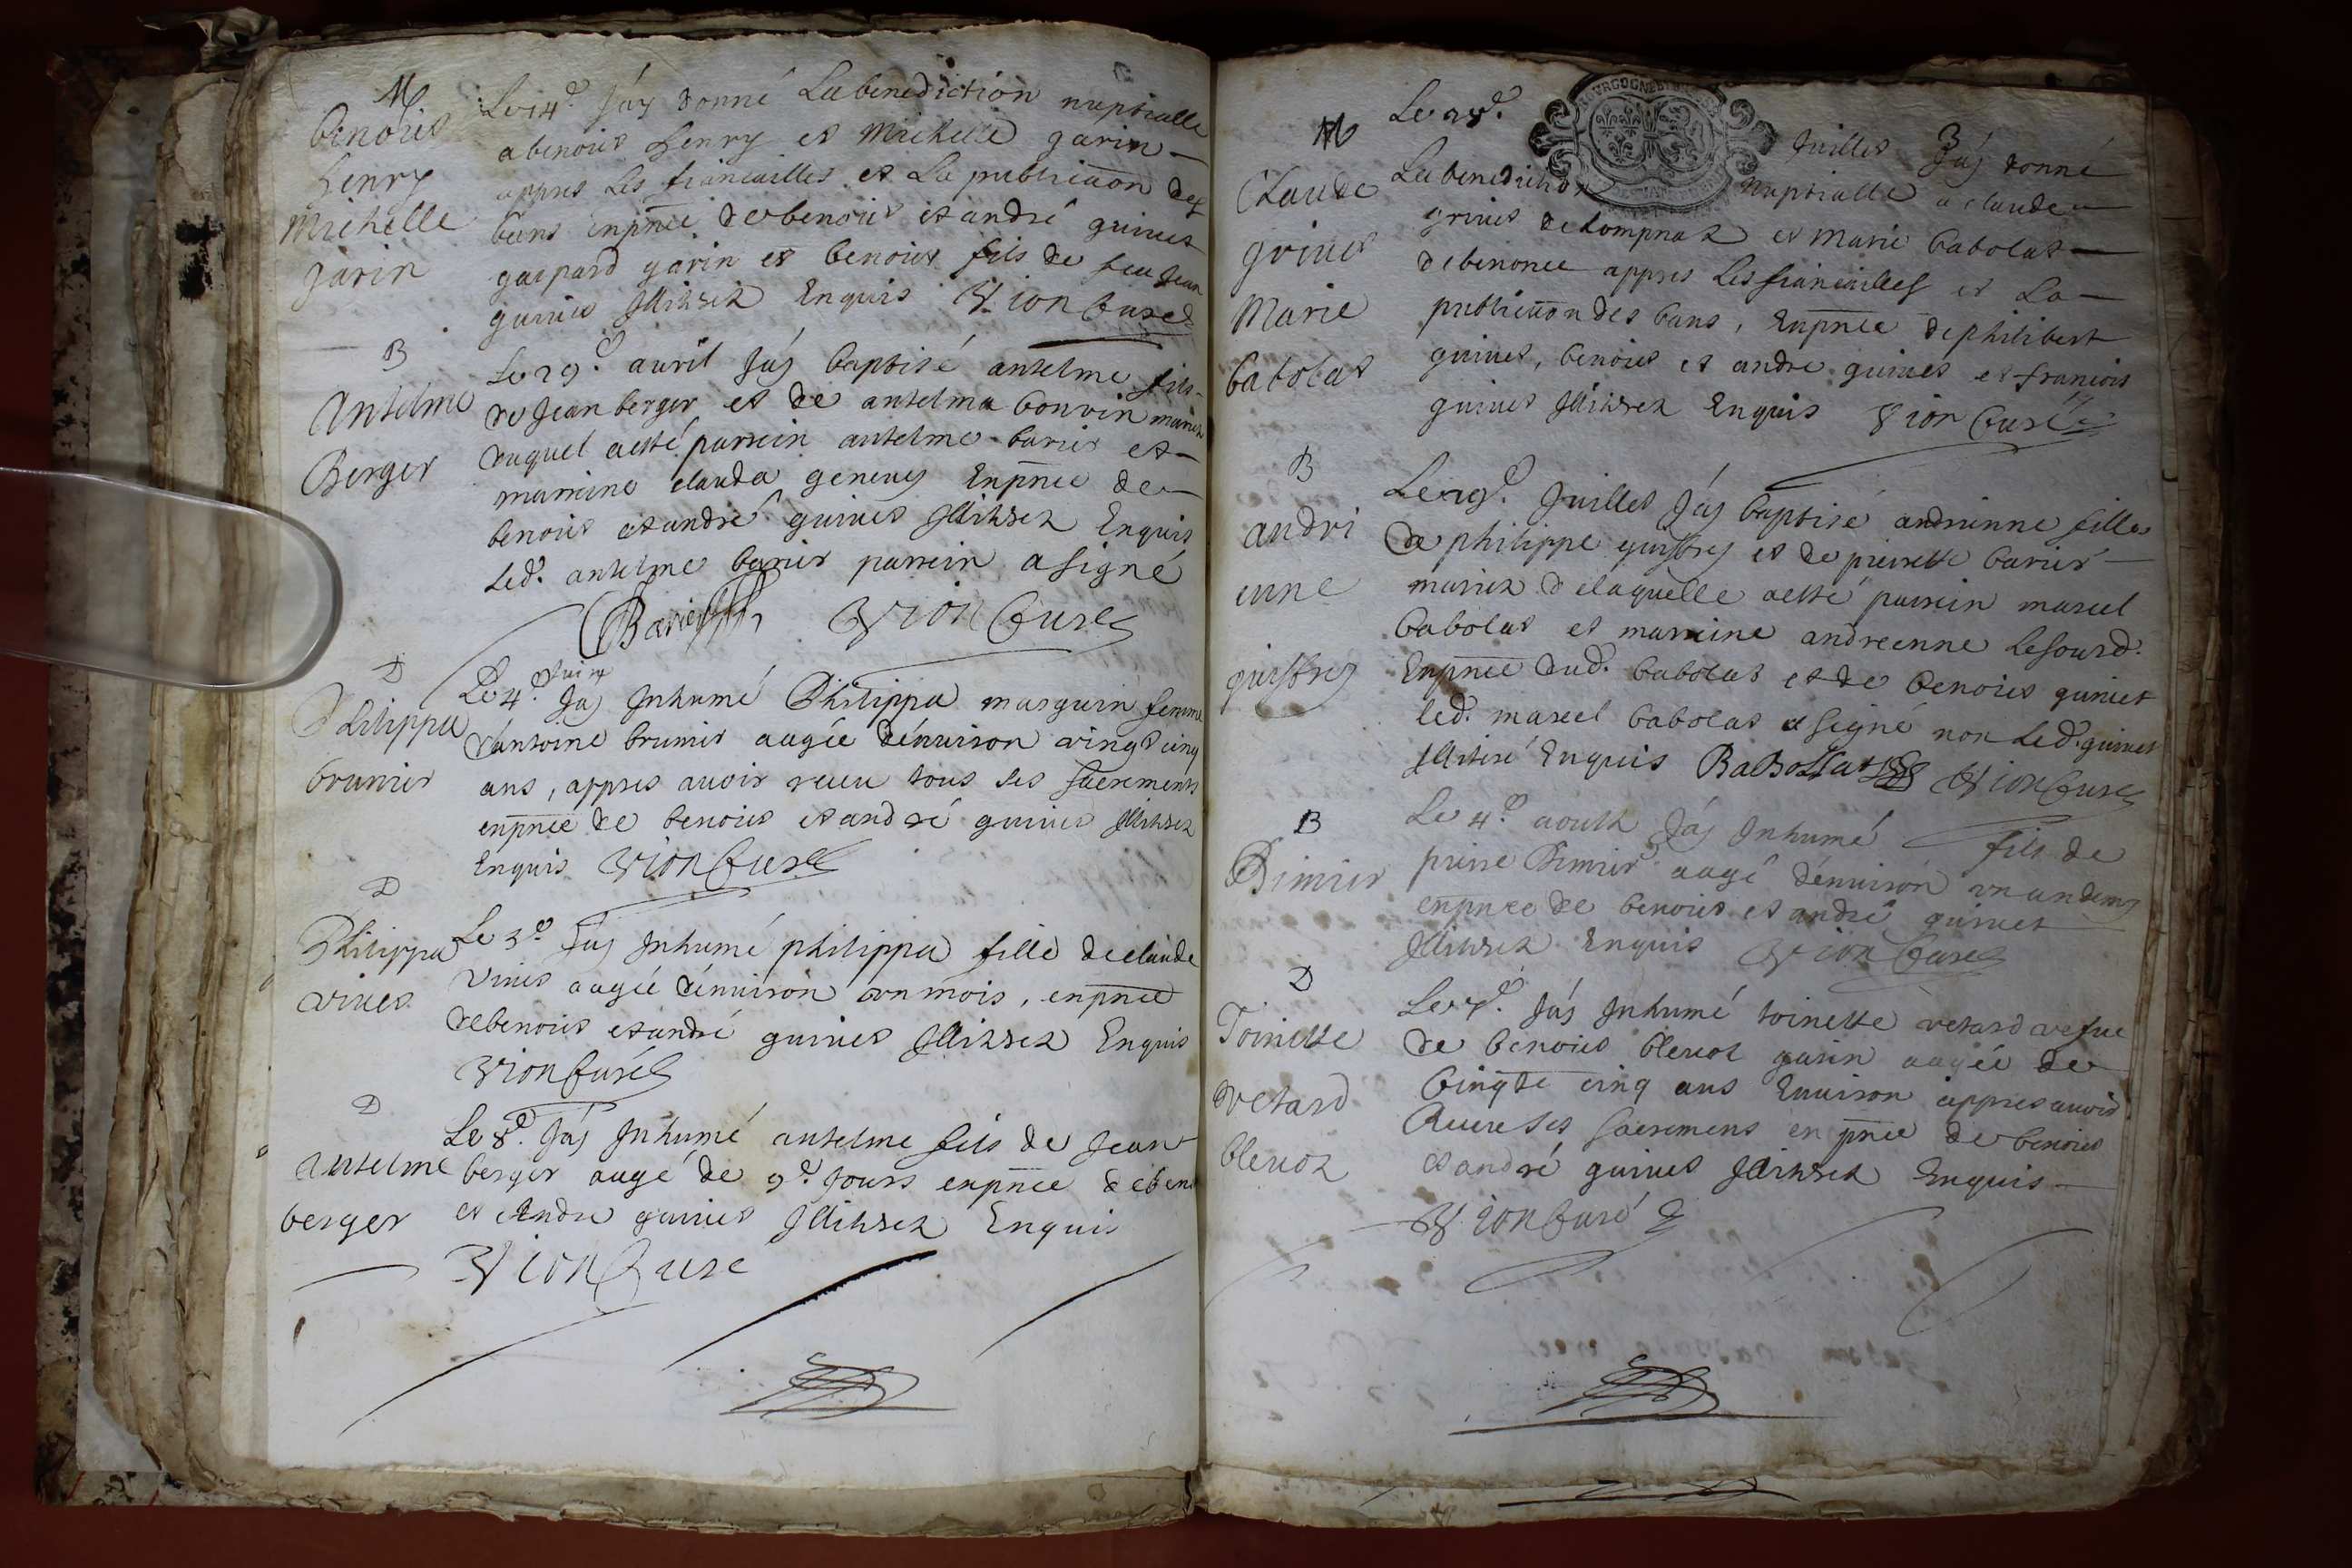 M
benoiet
henry
Michelle
garin
Le 14e Jay donné La benediction nuptialle
a benoiet henry et Michelle garin
appres Les fiancailles et La publication des
bans enpnce de benoiet et andré guinet
gaspard garin et benoiet fils de feu Jean
guinet Illitrez Enquis Vion Curé
B
Antelme
Berger
Le 29e avril Jay baptisé antelme fils
de Jean berger et de antelma bonvin mariez
duquel a esté parrein antelme barier et
marreine clauda genevey Enpnce de
benoiet et andré guinet Illitrez Enquis
Led. antelme barier parrein a signé
Barier Vion Curé
D
Philippa
brunier
Le 4e Juin Jay Inhumé Philippa marguin femme
d'antoine brunier augée d'environ vingt cinq
ans, appres avoir receu tous ses sacremens
enpnce de benoiet et andré guinet Illitrez
Enquis Vion Curé
D
Philippa
vinet
Le 3e Jay Inhumé philippa fille de claude
Vinet augée d'environ un mois, enpnce
de benoiet et andré guinet Illitrez Enquis
Vion Curé
D
antelme
berger
Le 8e Jay Inhumé antelme fils de Jean
berger augé de 9e Jours enpnce de ben
et Andre guinet Illitrez Enquis
Vion Cure
M
Claude
grinet
Marie
babolat
Le 28e Juillet Jay donné
La benediction nuptialle a claude
grinet de Lompnaz et Marie babolat
de benonce appres Les fiancailles et La
publication des bans, Enpnce de philibert
guinet, benoiet et andre guinet et francois
guinet Illitrez Enquis Vion Curé
B
andri
enne
Le 29e Juillet Jay baptisé andrienne fille
de philippe et de pierrette barier
mariez de laquelle a esté parrein marcel
babolat et marreine andreenne Lesourd.
Enpnce dud. babolat et de benoiet guinet
led. marcel babolat a signé non Led. guinet
Illitéré Enquis BaBollat Vion Curé
B
Dimier
Le 4e aoust Jay Inhumé fils de
pierre Dimier augé d'environ un an demy
enpnce de benoiet et andré guinet
Illitrez Enquis Vion Curé
D
Toinette
vetard
blenoz
Le 7e Jay Inhumé toinette vetard vefue
de benoiet blenoz garin augée de
cinqte cinq ans Environ appres avoir
Receu ses sacremens en pnce de benoiet
et andré guinet Illitrez Enquis
Vion Curé